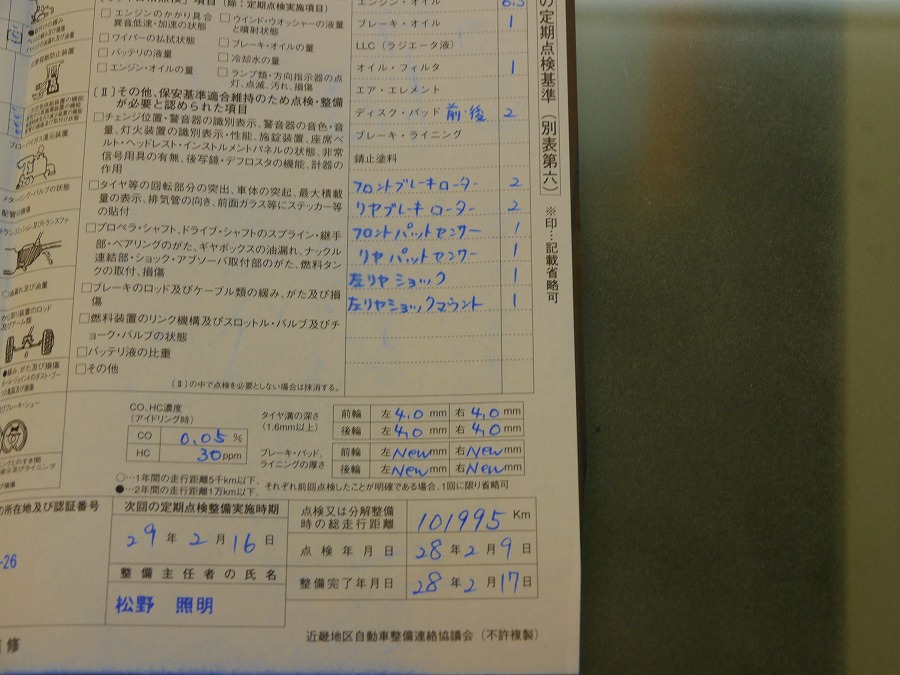 エンジンのかかり具合
異音低速・加速の状態
ワイパーの払拭状態
バッテリの液量
エンジン・オイルの量
ウインド・ウオッシャーの液量
と噴射状態
ブレーキ・オイルの量
冷却水の量
ランプ類・方向指示器の点
灯、点滅、汚れ、損傷
〔Ⅱ〕その他、保安基準適合維持のため点検・整備
が必要と認められた項目
□チェンジ位置・警音器の識別表示、警音器の音色・音
量、灯火装置の識別表示・性能、施錠装置、座席ベ
ルト・ヘッドレスト・インストルメントパネルの状態、非常
信号用具の有無、後写鏡・デフロスタの機能、計器の
作用
□タイヤ等の回転部分の突出、車体の突起、最大積載
量の表示、排気管の向き、前面ガラス等にステッカー等
の貼付
□プロペラ・シャフト、ドライブ・シャフトのスプライン・継手
部・ベアリングのがた、ギヤボックスの油漏れ、ナックル
連結部・ショック・アブソーバ取付部のがた、燃料タン
クの取付、損傷
□ブレーキのロッド及びケーブル類の緩み、がた及び損
傷
□燃料装置のリンク機構及びスロットル・バルブ及びチ
ョーク・バルブの状態
□バッテリ液の比重
□その他
〔Ⅱ〕の中で点検を必要としない場合は抹消する。
エンジン・オイル 6.5
ブレーキ・オイル 1
LLC（ラジエータ液）
オイル・フィルタ 1
エア・エレメント
ディスク・パッド 前・後 2
ブレーキ・ライニング
錆止塗料
フロントブレーキローター 2
リヤブレーキローター 2
フロントパットセンサー 1
リヤパットセンサー 1
左リヤショック 1
左リヤショックマウント 1
の定期点検基準（別表第六）
※印…記載省略可
CO、HC濃度
（アイドリング時）
CO 0.05 %
HC 30 ppm
タイヤ溝の深さ
（1.6mm以上）
前輪 左 4.0 mm 右 4.0 mm
後輪 左 4.0 mm 右 4.0 mm
ブレーキ・パッド、
ライニングの厚さ
前輪 左 New mm 右 New mm
後輪 左 New mm 右 New mm
○…1年間の走行距離5千km以下、
●…2年間の走行距離1万km以下、
それぞれ前回点検したことが明確である場合、1回に限り省略可
の所在地及び認証番号
-26
次回の定期点検整備実施時期
29年2月16日
整備主任者の氏名
松野 照明
点検又は分解整備
時の総走行距離
101995 Km
点検年月日 28年2月9日
整備完了年月日 28年2月17日
近畿地区自動車整備連絡協議会（不許複製）